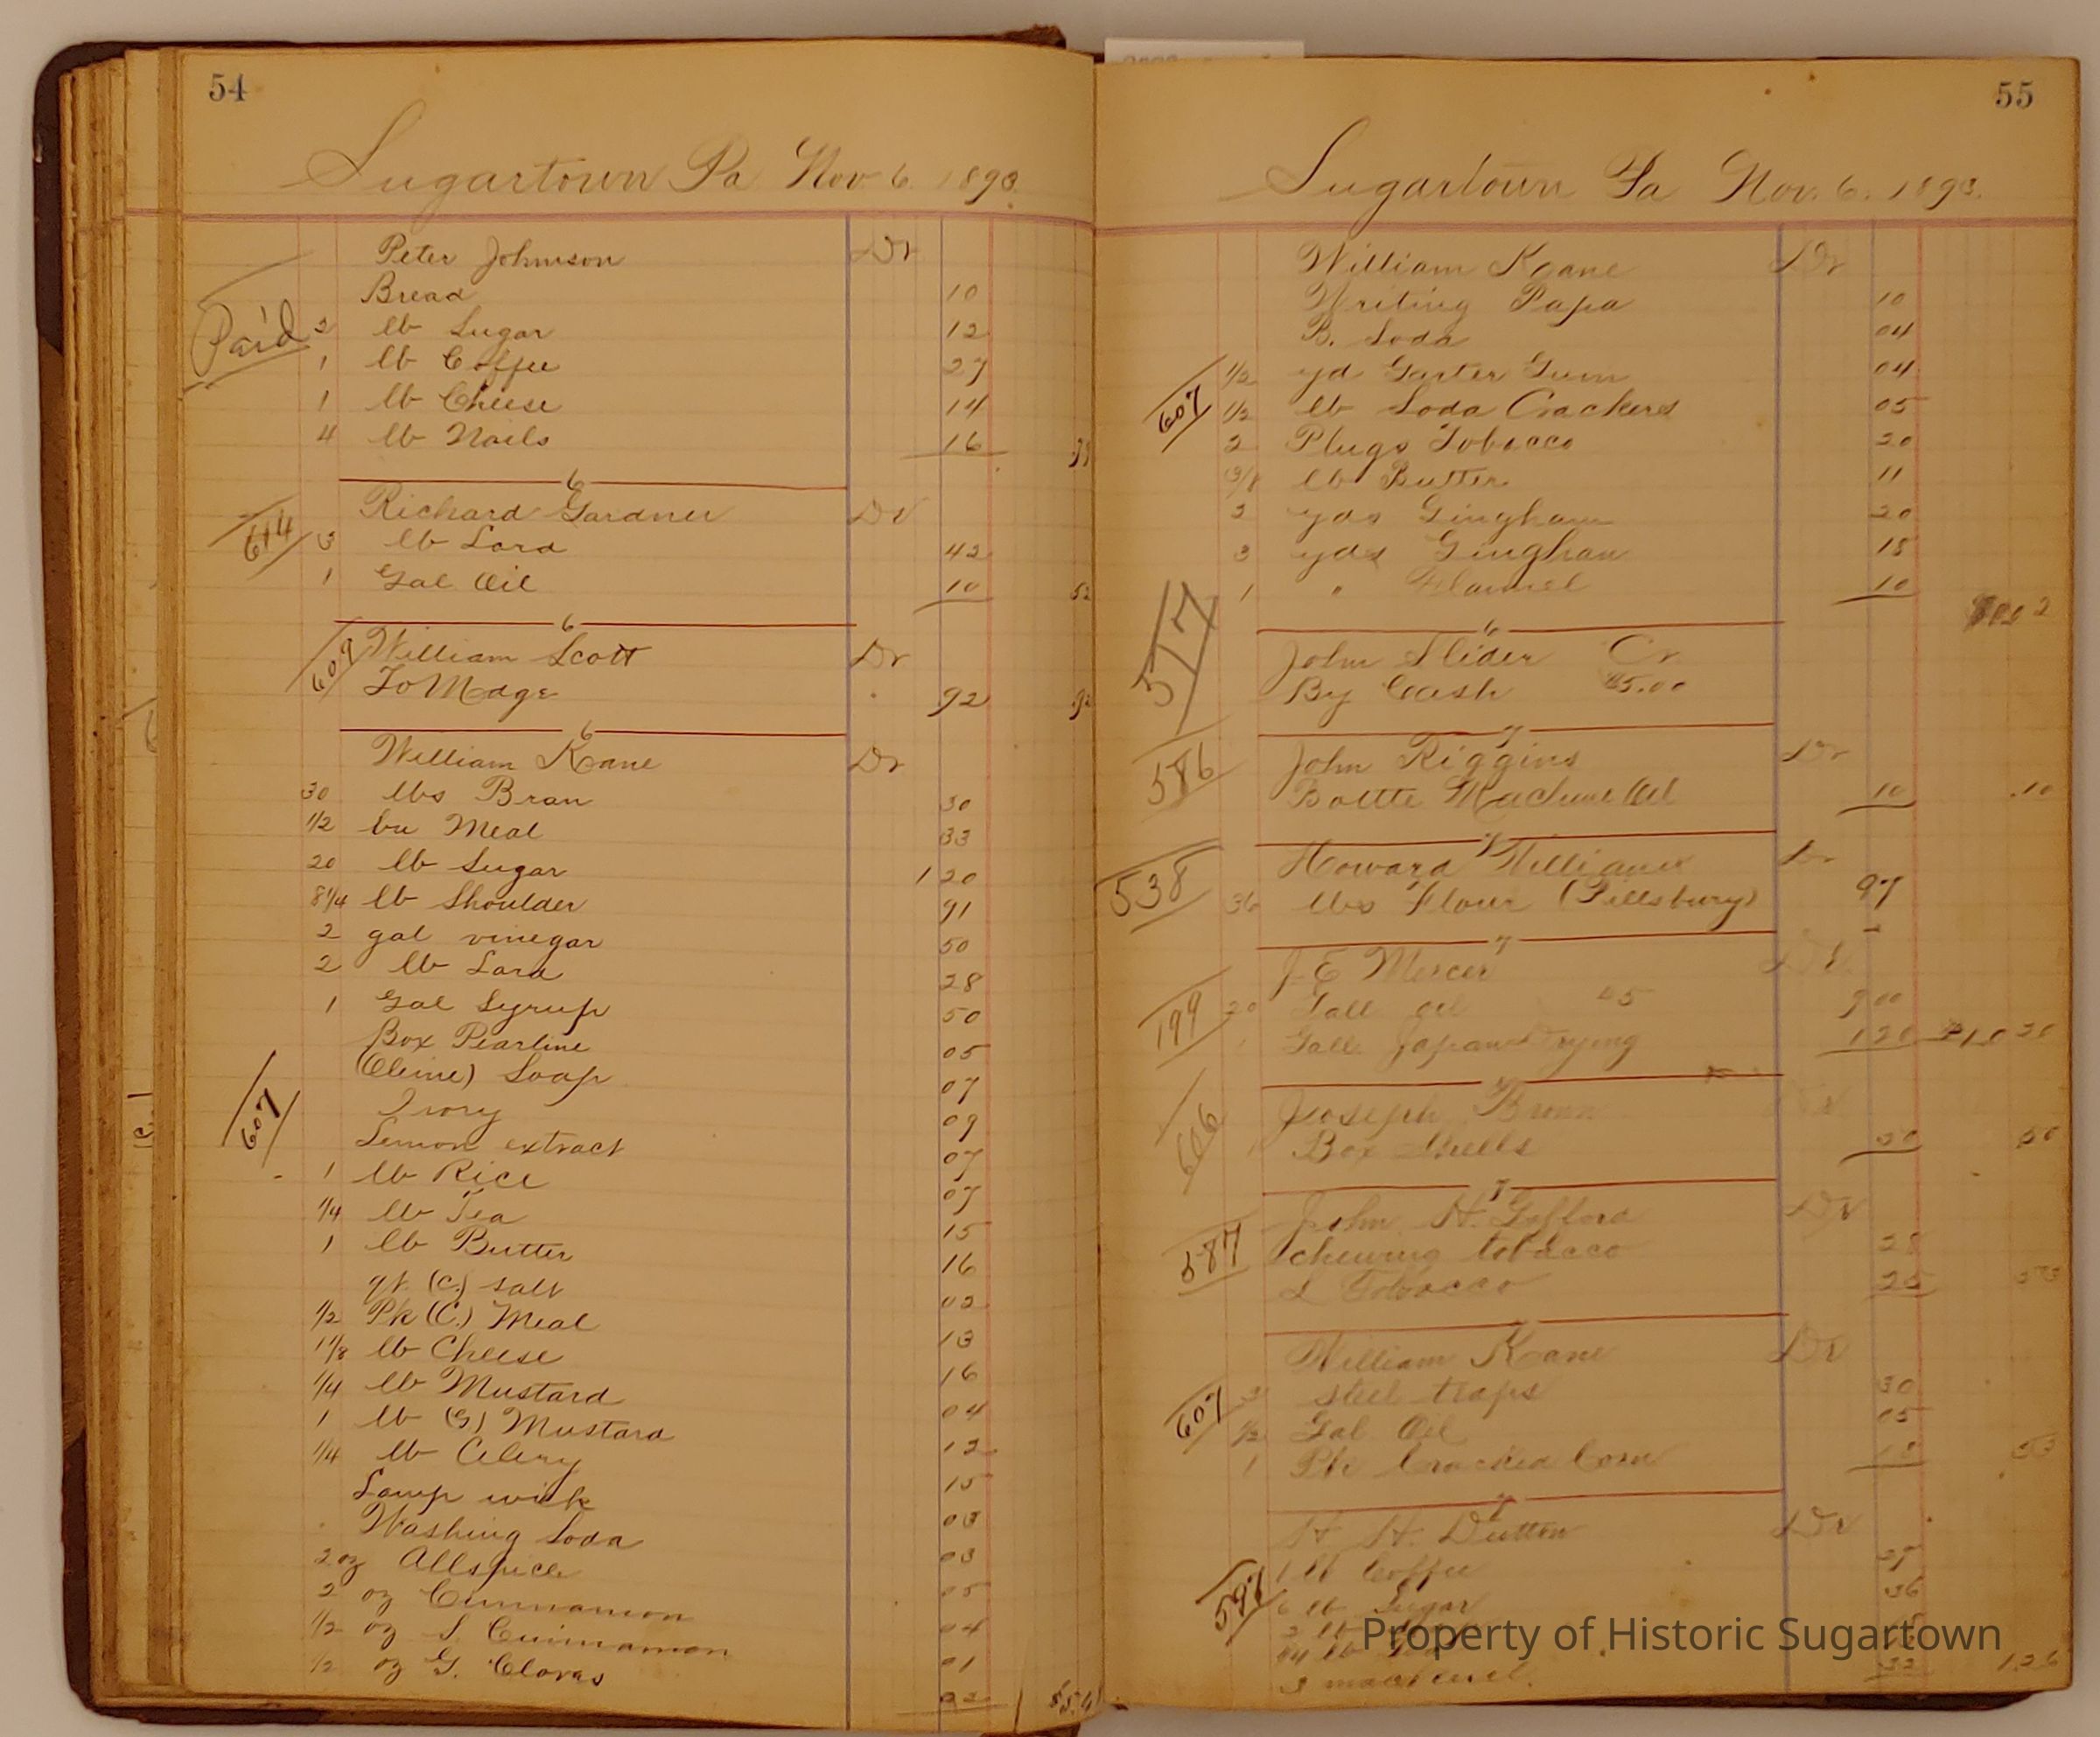 54
Sugartown Pa Nov 6. 1893.
Peter Johnson Dr
Bread 10
Paid
2 lb Sugar 12
1 lb Coffee 27
1 lb Cheese 14
4 lb Nails 16
6
Richard Gardner Dr
614
3 lb Lard 42
1 Gal Oil 10 52
6
609
William Scott Dr
To Mdge 92 92
6
William Kane Dr
30 lbs Bran 30
1/2 bu Meal 33
20 lb Sugar 1 20
8 1/4 lb Shoulder 91
2 gal vinegar 50
2 lb Lard 28
1 Gal Syrup 50
Box Pearline 05
(Oleine) Soap 07
607
Ivory 09
Lemon extract 07
1 lb Rice 07
1/4 lb Tea 15
1 lb Butter 16
qt. (C.) salt 02
1/2 Pk (C.) Meal 13
1 1/8 lb Cheese 16
1/4 lb Mustard 04
1 lb (G) Mustard 12
1/4 lb Celery 15
Lamp wick 03
Washing Soda 03
2 oz Allspice 05
2 oz Cinnamon 04
1/2 oz S. Cinnamon 01
1/2 oz G. Cloves 02
55
Sugartown Pa Nov. 6. 1893.
William Kane Dr
Writing Papa 10
B. Soda 04
1/2 yd Garter Gum 04
607
1/2 lb Soda Crackers 05
2 Plugs Tobacco 20
3/8 lb Butter 11
2 yds Gingham 20
3 yds Gingham 18
1 " Flannel 10
6
517
John Slider Cr
By Cash $5.00
7
586
John Riggins Dr
Bottle Machine Oil 10 .10
7
Howard Williams Dr
538
36 lbs Flour (Pillsbury) 97
7
J. E Mercer Dr
199
20 Gall oil 45 9 00
Gall Japan Drying 1 20
7
606
Joseph Brown Dr
1 Box Shells 50 50
7
John H. Gifford Dr
587
chewing tobacco 28
S Tobacco 25 53
7
William Kane Dr
607
3 steel traps 30
1/2 Gal Oil 05
1 Pk Cracked Corn 18 53
7
H. H. Dutton Dr
1 lb Coffee
6 lb Sugar 36
3 mackerel 1.26
Property of Historic Sugartown